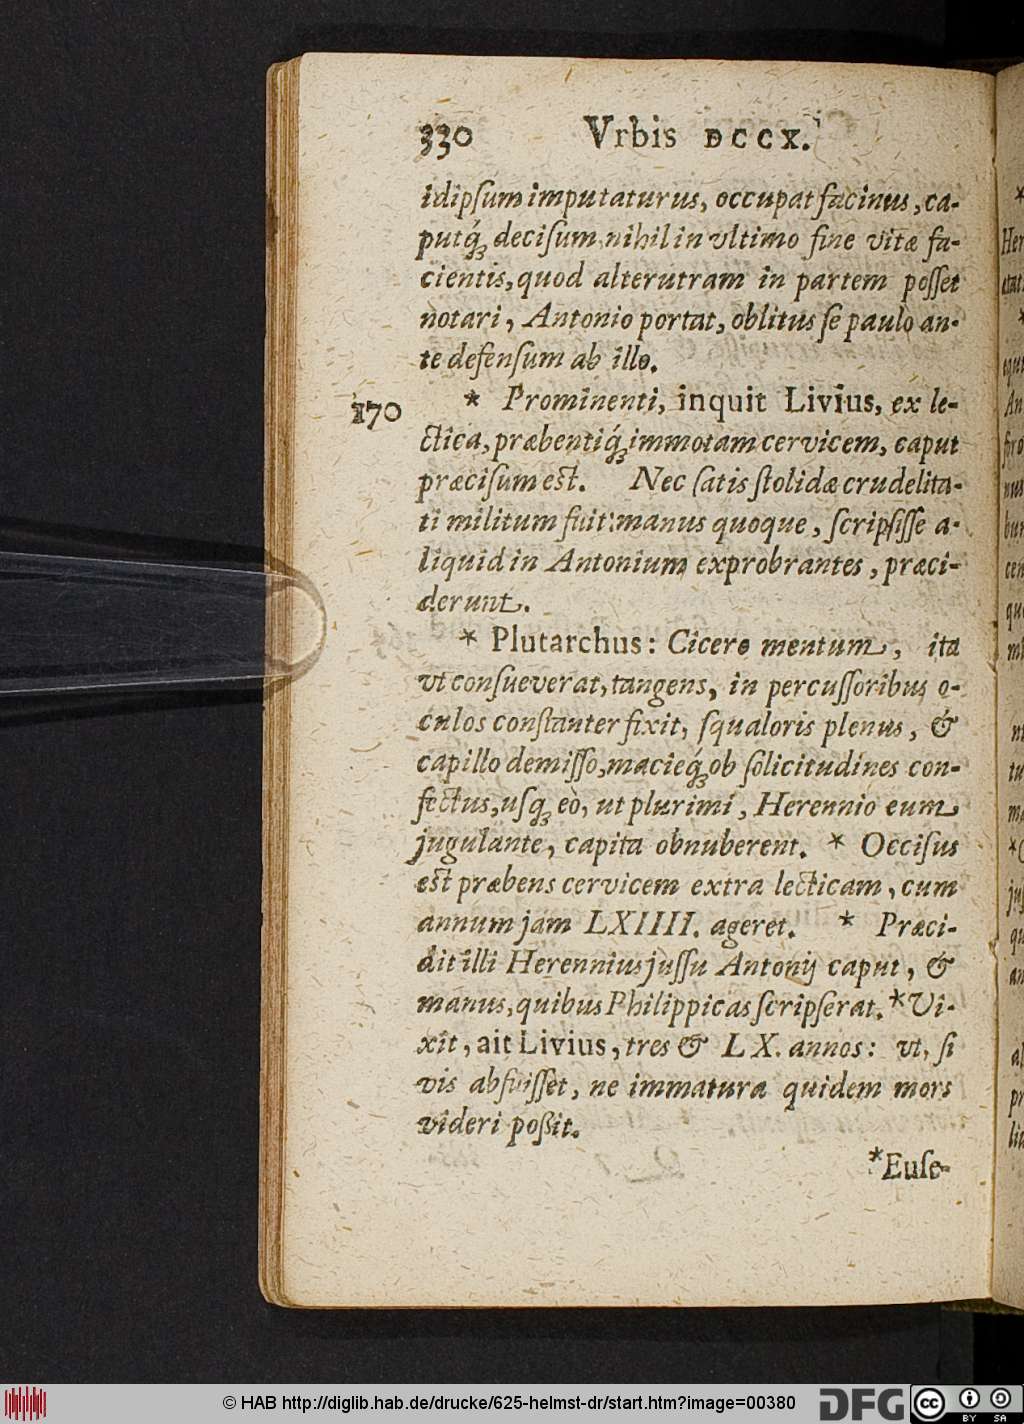 330 Vrbis DCCX.
idipſum imputaturus, occupat facinus, ca-
putq́; deciſum nihil in vltimo fine vitæ fa-
cientis, quod alterutram in partem poſſet
notari, Antonio portat, oblitus ſe paulò an-
te defenſum ab illo.
170 * Prominenti, inquit Livius, ex le-
ctica, præbentiq́; immotam cervicem, caput
præciſum est. Nec ſatis ſtolidæ crudelita-
ti militum fuit: manus quoque, ſcripſiſſe a-
liquid in Antonium exprobrantes, præci-
derunt.
* Plutarchus: Cicero mentum, ita
vt conſueverat, tangens, in percuſſoribus o-
culos conſtanter fixit, ſqualoris plenus, &
capillo demiſſo, macieq́; ob ſolicitudines con-
fectus, uſq; eò, ut plurimi, Herennio eum
jugulante, capita obnuberent. * Occiſus
est præbens cervicem extra lecticam, cum
annum jam LXIIII. ageret. * Præci-
dit illi Herennius juſſu Antonij caput, &
manus, quibus Philippicas ſcripſerat. * Vi-
xit, ait Livius, tres & LX. annos: vt, ſi
vis abfuiſſet, ne immatura quidem mors
videri poßit.
*Euſe-
© HAB http://diglib.hab.de/drucke/625-helmst-dr/start.htm?image=00380
DFG
cc BY SA